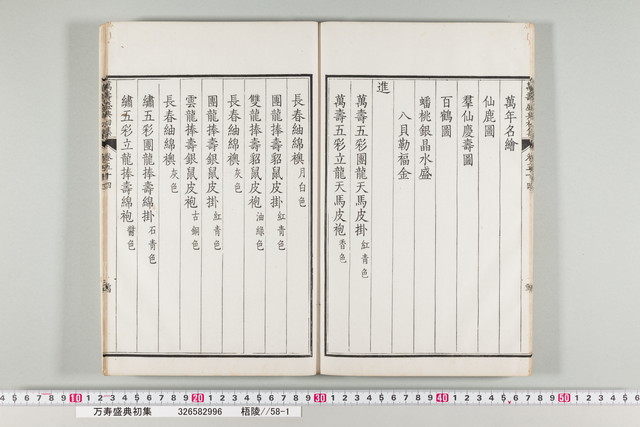 萬年名繪
仙鹿圖
羣仙慶壽圖
百鶴圖
蟠桃銀晶水盛
八貝勒福金
進
萬壽五彩團龍天馬皮掛紅青色
萬壽五彩立龍天馬皮袍香色
長春紬綿襖月白色
團龍捧壽貂鼠皮掛紅青色
雙龍捧壽貂鼠皮袍油綠色
長春紬綿襖灰色
團龍捧壽銀鼠皮掛紅青色
雲龍捧壽銀鼠皮袍古銅色
長春紬綿襖灰色
繡五彩團龍捧壽綿掛石青色
繡五彩立龍捧壽綿袍醬色
万寿盛典初集 326582996 梧陵//58-1